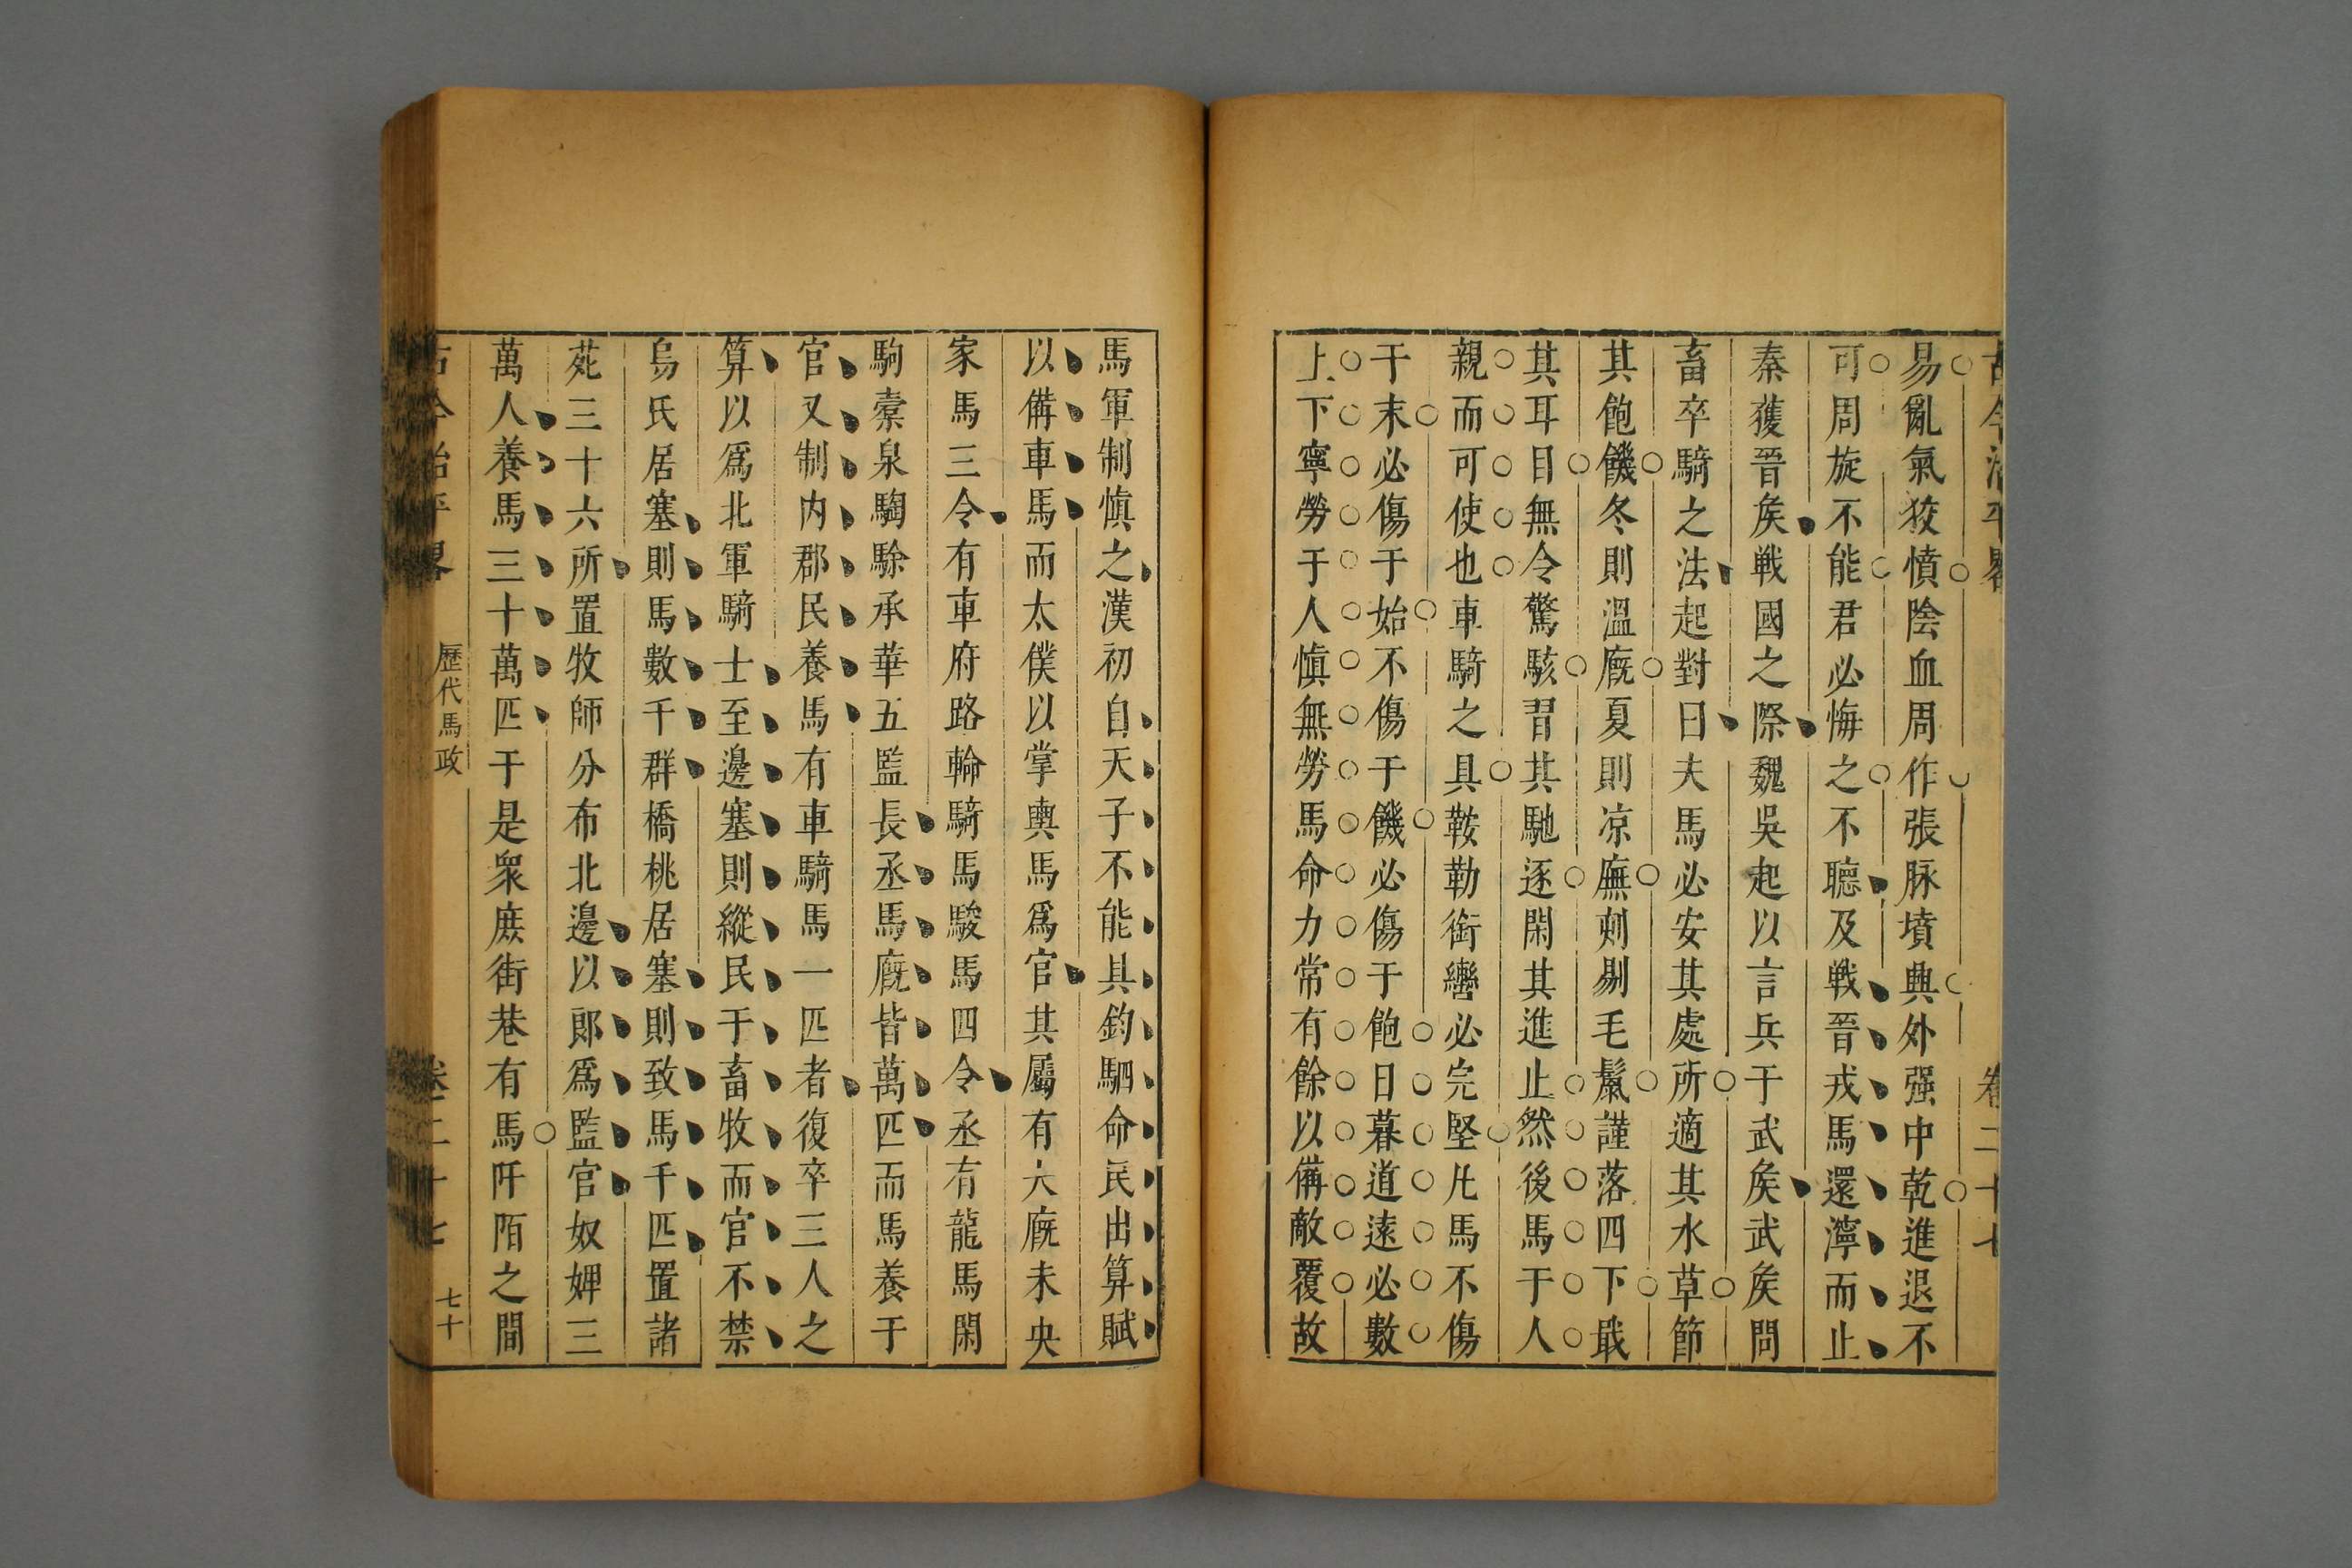 古今治平畧 卷二十七
易亂氣狡憤陰血周作張脉墳興外强中乾進退不
可周旋不能君必悔之不聽及戰晉戎馬還濘而止
秦獲晉矦戰國之際魏吳起以言兵于武矦武矦問
畜卒騎之法起對曰夫馬必安其處所適其水草節
其飽饑冬則溫廐夏則凉廡刻剔毛鬛謹落四下戢
其耳目無令驚駭習其馳逐閑其進止然後馬于人
親而可使也車騎之具鞍勒銜轡必完堅凡馬不傷
于末必傷于始不傷于饑必傷于飽日暮道遠必數
上下寧勞于人愼無勞馬命力常有餘以備敵覆故
馬軍制愼之漢初自天子不能具鈞駟命民出算賦
以備車馬而太僕以掌輿馬爲官其屬有大廐未央
家馬三令有車府路軨騎馬駿馬四令丞有龍馬閑
駒橐泉騊駼承華五監長丞馬廐皆萬匹而馬養于
官又制内郡民養馬有車騎馬一匹者復卒三人之
算以爲北軍騎士至邊塞則縱民于畜牧而官不禁
烏氏居塞則馬數千群橋桃居塞則致馬千匹置諸
苑三十六所置牧師分布北邊以郎爲監官奴婢三
萬人養馬三十萬匹于是衆庶街巷有馬阡陌之間
古今治平畧 歷代馬政 卷二十七 七十